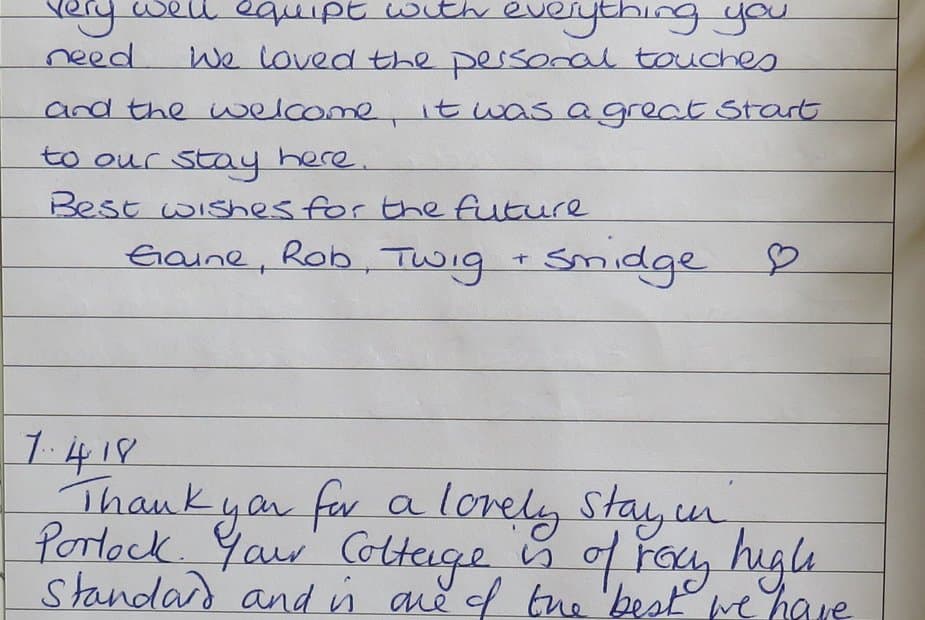 very well equipt with everything you
need We loved the personal touches
and the welcome, it was a great start
to our stay here.
Best wishes for the future
Elaine, Rob, Twig + Smidge ♡
7.4 18
Thank you for a lovely stay in
Porlock. Your Cotteige is of very high
standard and is one of the best we have